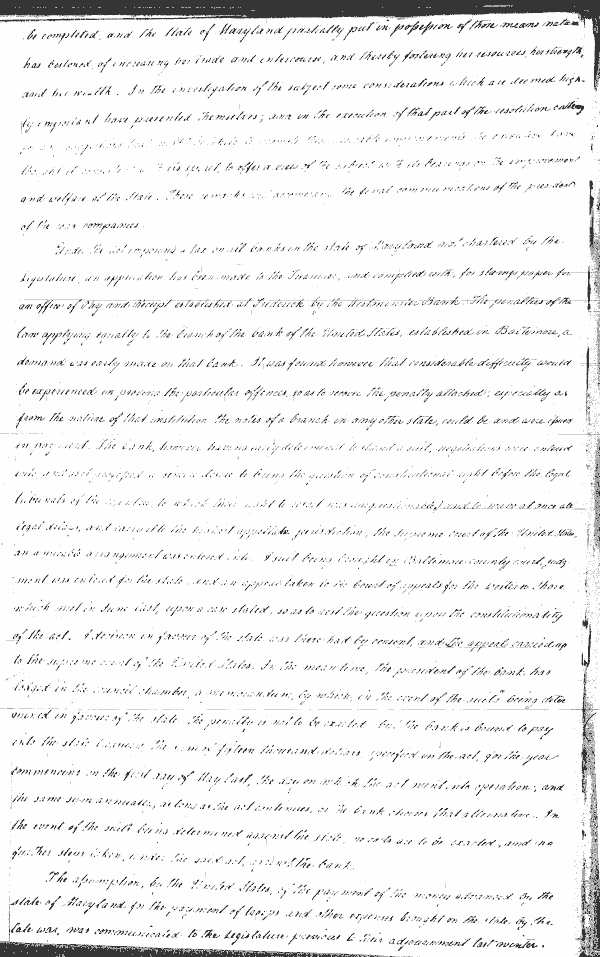 be completed, and the State of Maryland partially put in possession of those means nature
has bestowed, of increasing her trade and intercourse, and thereby fostering her resources, her strength,
and her wealth. In the investigation of the subject some considerations which are deemed high-
ly important have presented themselves; and in the execution of that part of the resolution calling
to offer a view of the subject with its bearings on the improvement
and welfare of the State. These remarks will accompany the final communications of the president
of the companies.
Under the act imposing a tax on all banks in the state of Maryland not chartered by the
Legislature, an application has been made to the Treasurer, and complied with, for stamp paper for
an office of Pay and Receipt established at Frederick by the Westminster Bank. The penalties of the
law applying equally to the branch of the bank of the United States, established in Baltimore, a
demand was early made on that bank. It was found however that considerable difficulty would
be experienced in proving the particular offences, so as to recover the penalty attached; especially as
from the nature of that institution the notes of a branch in any other state, could be and were
in payment. The bank, however having early determined to stand a suit, negotiations were entered
into and a sincere desire to bring the question of constitutional right before the legal
tribunals of the country, to which their right to resort was unquestionable, and to waive at once all
legal delays, and carry it to the highest appellate jurisdiction, the supreme court of the United States,
an amicable arrangement was entered into. A suit being brought in Baltimore county court, judg-
ment was entered for the state, and an appeal taken to the court of appeals for the western shore
which met in June last, upon a case stated, so as to rest the question upon the constitutionality
of the act. A decision in favour of the state was there had by consent, and the appeal carried up
to the supreme court of the United States. In the mean time, the president of the bank has
lodged in the council chamber, a memorandum, by which, in the event of the suit's being deter-
mined in favour of the state the penalty is not to be exacted but the bank is bound to pay
into the state treasury the sum of fifteen thousand dollars specified in the act, for the year
commencing on the first day of May last, the day on which the act went into operation; and
the same sum annually, as long as the act continues, or the bank chooses that alternative. In
the event of the suit's being determined against the state, no costs are to be exacted, and no
further steps taken, under the said act, against the bank.
The assumption, by the United States, of the payment of the money advanced by the
state of Maryland for the payment of troops and other expenses brought on the state by the
late war, was communicated to the Legislature previous to their adjournment last winter.